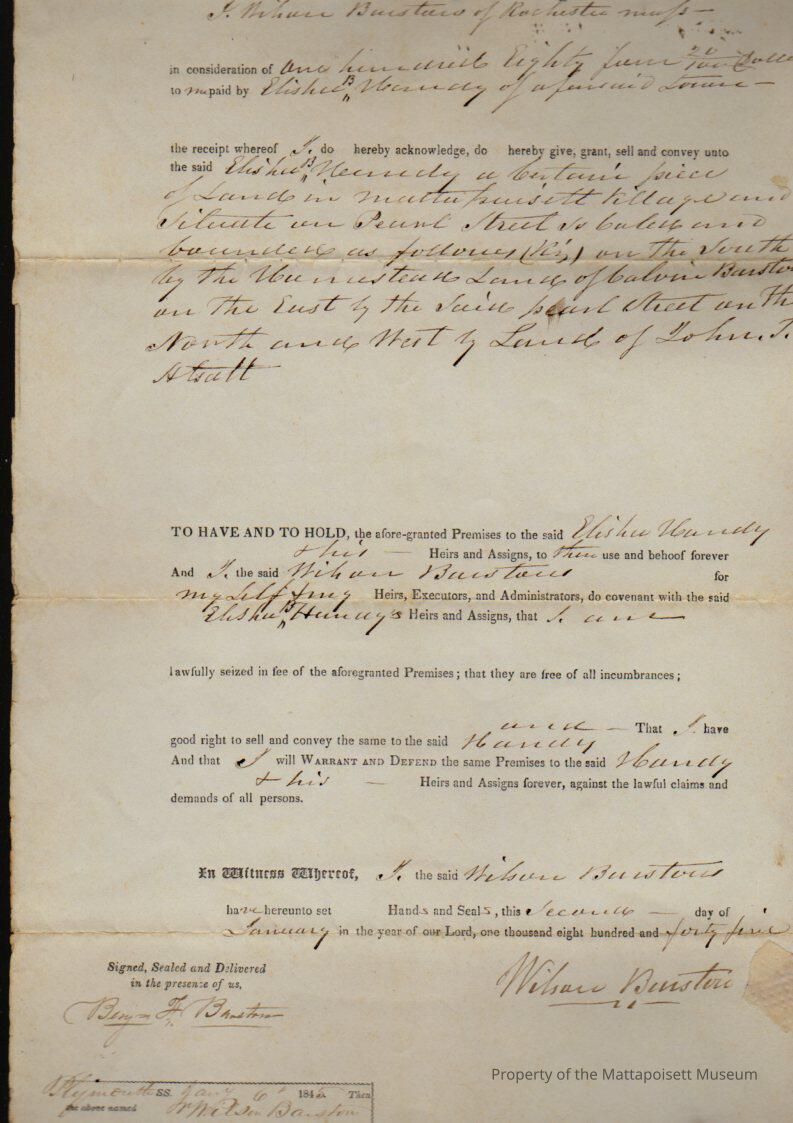 I. Wilson Barstow of Rochester mass
in consideration of one hundred Eighty four 20/100 Dolla
to me paid by Elisha B Handy of aforsaid Town
the receipt whereof I. do hereby acknowledge, do hereby give, grant, sell and convey unto
the said Elisha B Handy a Certain piece
of Land in mattapoisett Village and
Situate on Pearl Street So Caled and
bounded as follows (Viz) on the South
by the Homestead Land of Calvin Barsto
on the East by the Said pearl Street on th
North and West by Land of John T.
Atsatt
TO HAVE AND TO HOLD, the afore-granted Premises to the said Elisha Handy
& his Heirs and Assigns, to their use and behoof forever
And I. the said Wilson Barstow for
my Self & my Heirs, Executors, and Administrators, do covenant with the said
Elisha B Handy's Heirs and Assigns, that I. am
lawfully seized in fee of the aforegranted Premises; that they are free of all incumbrances;
and That I. have
good right to sell and convey the same to the said Handy
And that I will WARRANT AND DEFEND the same Premises to the said Handy
& his Heirs and Assigns forever, against the lawful claims and
demands of all persons.
In Witness Whereof, I. the said Wilson Barstow
have hereunto set Hands and Seals, this Second day of
January in the year of our Lord, one thousand eight hundred and forty five
Signed, Sealed and Delivered
in the presence of us,
Wilson Barstow
Benjn F. Barstow
Property of the Mattapoisett Museum
Plymouth SS. Jany 6th 1845. Then
the above named Wilson Barstow